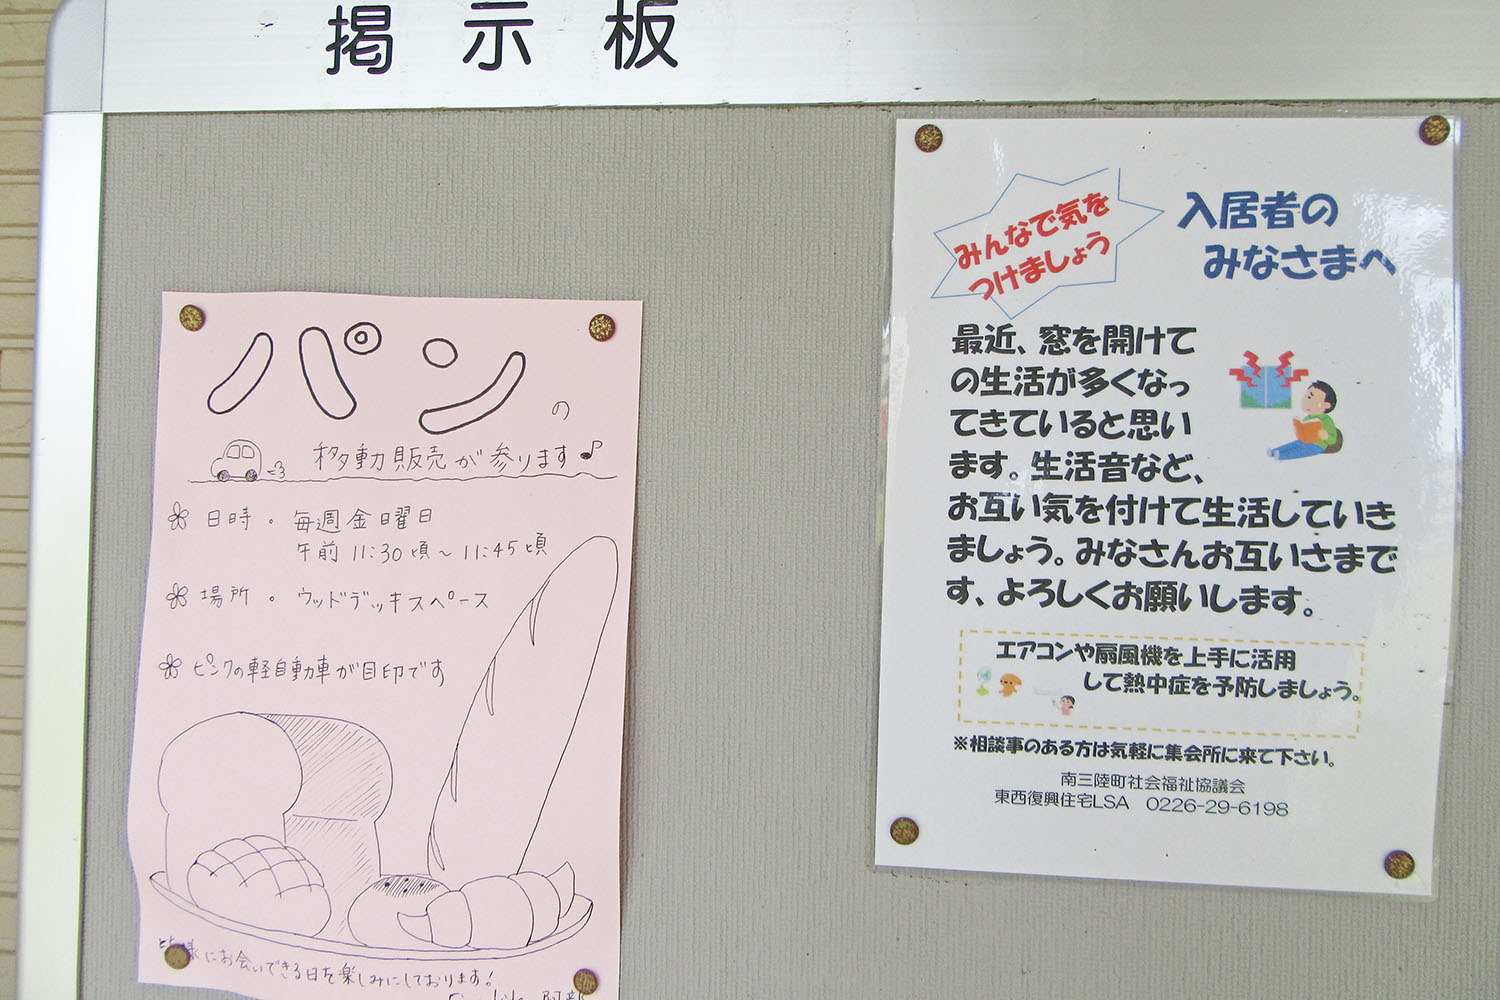 掲示板
パンの
移動販売が参ります♪
日時。毎週金曜日
午前 11:30頃～11:45頃
場所。ウッドデッキスペース
ピンクの軽自動車が目印です
皆様にお会いできる日を楽しみにしております!
阿部
みんなで気を
つけましょう
入居者の
みなさまへ
最近、窓を開けて
の生活が多くなっ
てきていると思い
ます。生活音など、
お互い気を付けて生活していき
ましょう。みなさんお互いさまで
す、よろしくお願いします。
エアコンや扇風機を上手に活用
して熱中症を予防しましょう。
※相談事のある方は気軽に集会所に来て下さい。
南三陸町社会福祉協議会
東西復興住宅LSA 0226-29-6198